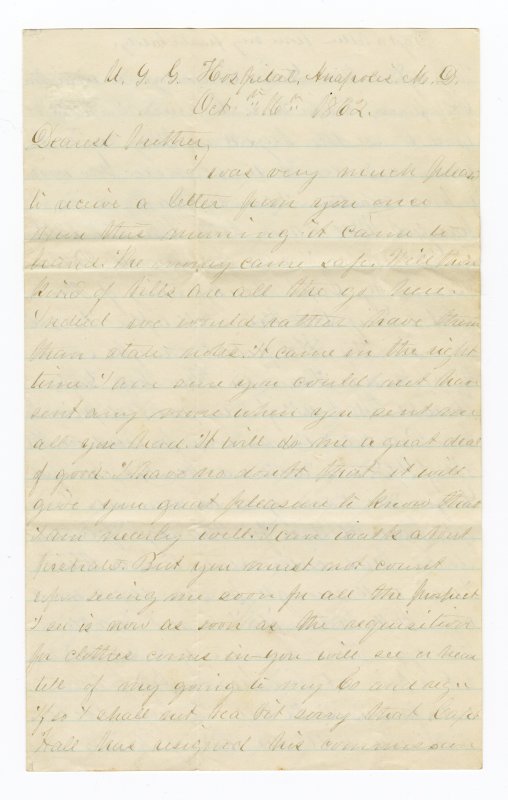 U. S. G. Hospital, Anapolis M. D.
Oct. 16th 1862.
Dearest Mother,
I was very much pleas
to receive a letter from you once
more this morning it came to
hand. The money came safe.
kind of bills are all the go here.
Indeed we would rather have them
than state notes. It came in the right
time. I am sure you could not have
sent any more when you sent me
all you had. It will do me a great deal
of good. I have no doubt that it will
give you great pleasure to know that
I am nearly well. I can walk about
firstrate. But you must not count
upon seeing me soon for all the prospect
I see is now as soon as the requisition
for clothes comes in you will see or hear
of my going to my Co and regt
If so I shall not be a bit sorry that Capt
Hall has resigned his commission